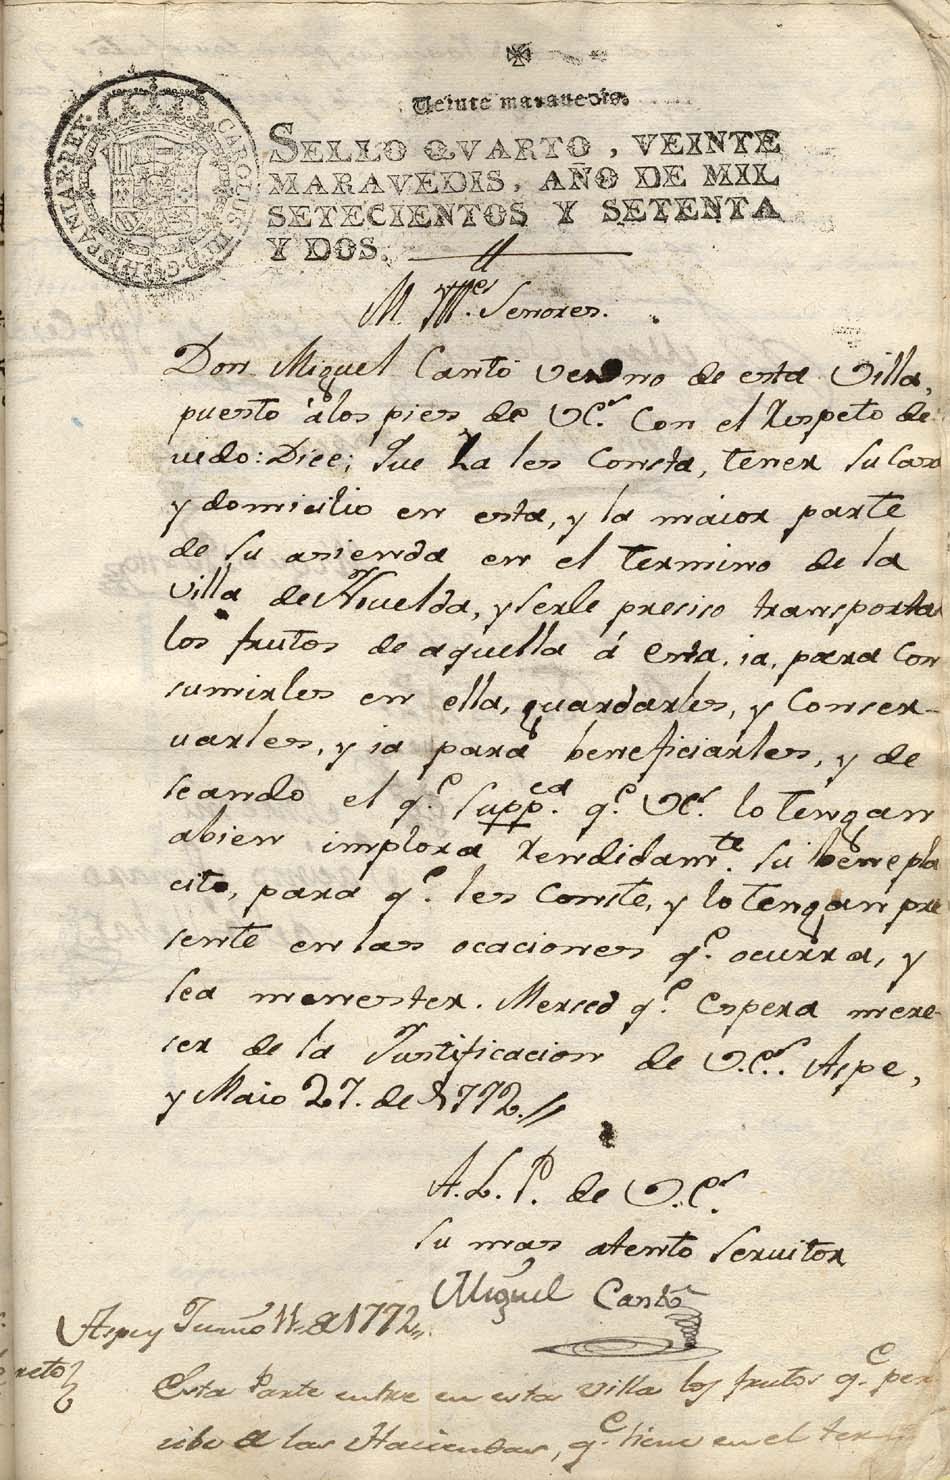 Veinte maravedis.
CAROLUS III D G HISPANIAR REX
SELLO QVARTO, VEINTE
MARAVEDIS, AÑO DE MIL
SETECIENTOS Y SETENTA
Y DOS.
M. Ill.es Señores.
Don Miguel Cantó vecino de esta Villa,
puesto á los pies de VS.s Con el Respeto de
uido: Dice; Que Ya les Consta, tener su Casa
y domicilio en esta, y la maior parte
de su asienda en el termino de la
villa de Nouelda, y serle preciso transportar
los frutos de aquella á Esta, ia, para Con
sumirles en ella, guardarles, y Conser-
uarles, y ia para beneficiarles, y de
seando el q.e Supp.ca q.e VS.s lo tengan
abien implora Rendidam.te su benepla
cito, para q.e les Conste, y lo tengan pre
sente en las ocaciones q.e ocurra, y
sea menester. Merced q.e Espera mere-
ser de la Justificacion de V.S.s. Aspe,
y Maio 27. de 1772.//
A. L. P. de V.S.s
su mas atento seruitor
Miguel Cantó
Aspe y Junio 11 de 1772
Esta Parte entre en esta villa los frutos q.e per
cibe de las Haciendas, q.e tiene en el termino